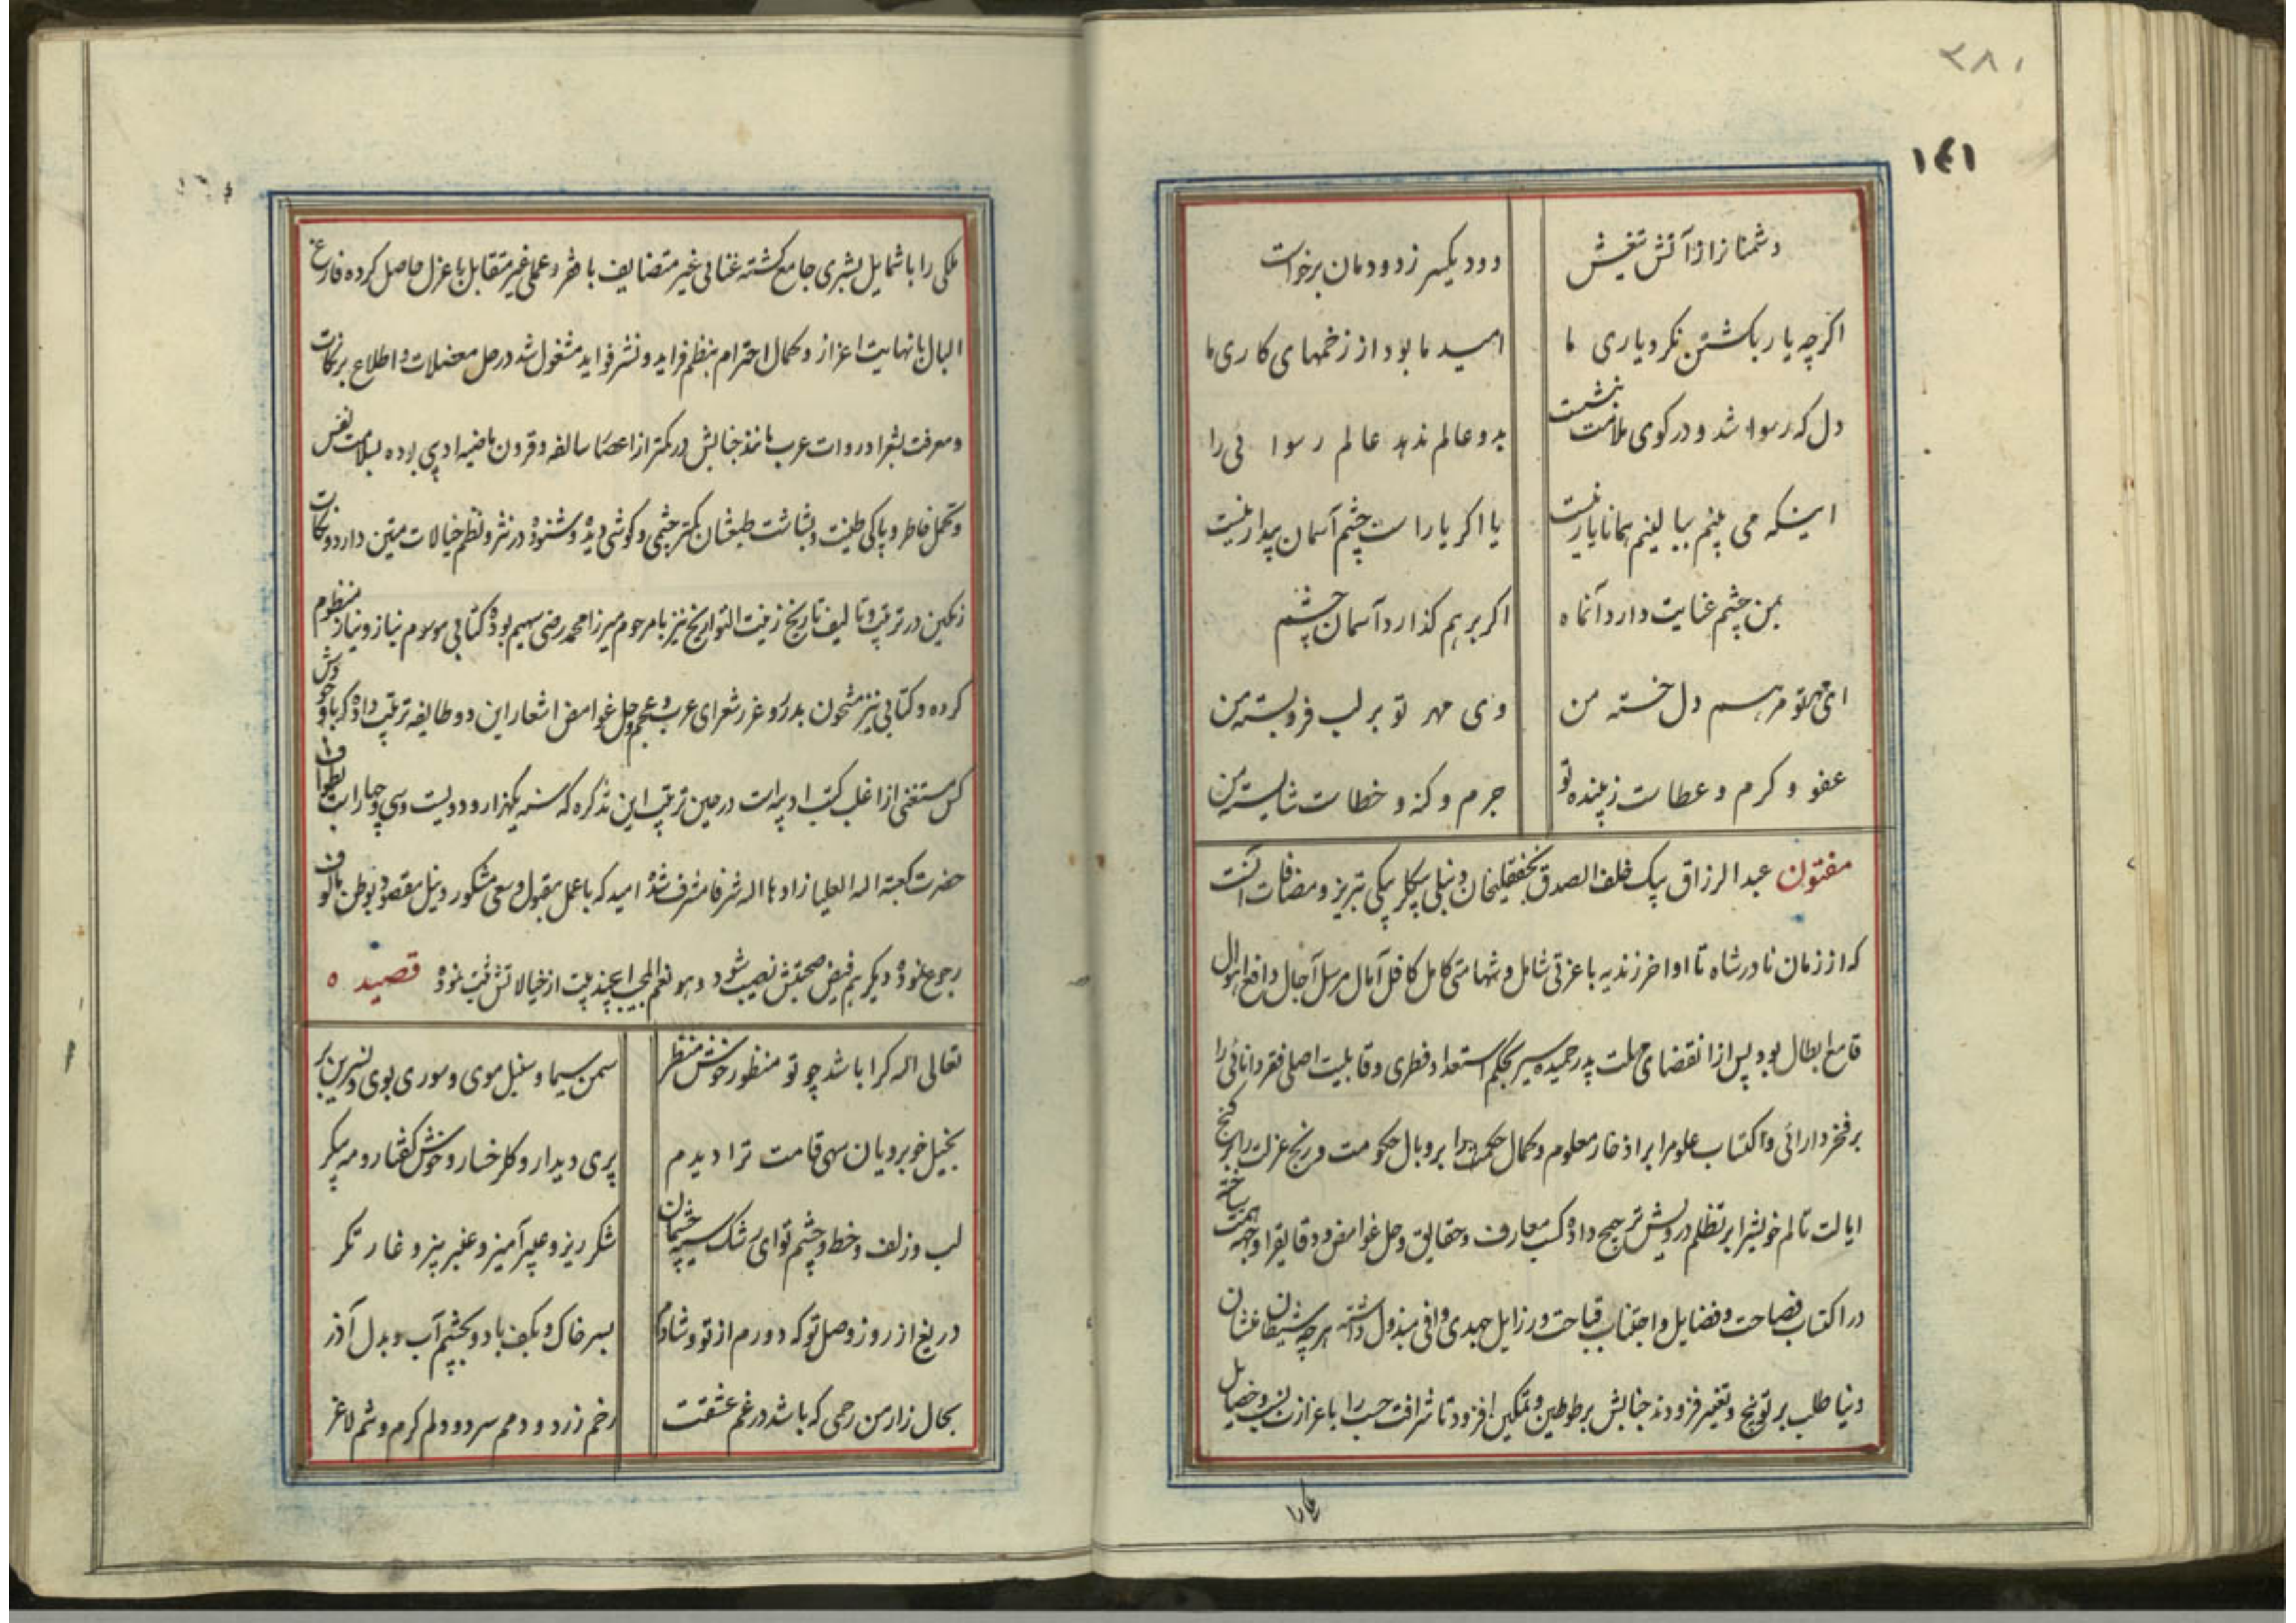 ۲۸۰
۱۴۱
دشمنانرا از آتش تیغش دود یکسر ز دودمان برخواست
اگرچه یار بکشتن نکرد یاری ما امید ما بود از زخمهای کاری ما
دل که رسوا شد و در کوی ملامت بنشست بدو عالم ندهد عالم رسوائی را
اینکه می بینم ببالینم همانا یار نیست یا اگر یار است چشم آسمان بیدار نیست
بمن چشم عنایت دارد آنماه اگر بر هم گذارد آسمان چشم
ای مهر تو مرهم دل خسته من وی مهر تو بر لب فرو بسته من
عفو و کرم و عطاست زیبنده تو جرم و گنه و خطاست شایسته من
مفتون عبدالرزاق بیک خلف الصدق نجفقلیخان دنبلی بیکلربیکی تبریز و مضافات است
که از زمان نادرشاه تا اواخر زندیه با عزتی شامل و شهامتی کامل کافل آمال مرسل آجال دافع اهوال
قامع ابطال بود پس از انقضای مهلت پدر حمیده سیر بحکم استعداد فطری و قابلیت اصلی فقر دانائی را
بر فخر دارائی و اکتساب علوم را بر اذخار معلوم و کمال حکمت را بر وبال حکومت و رنج عزلت را بر گنج
ایالت تالم خویشرا بر تظلم درویش ترجیح داده کسب معارف و حقایق و حل غوامض و دقایقرا وجهه همت ساخته
در اکتساب فصاحت و فضایل و اجتناب قباحت و رزایل جهدی وافی مبذول داشته هرچه شیطان غشان
دنیا طلب بر توبیخ و تغییر فزودند جنابش بر طوطین و تمکین افزود تا شرافت حسب را با عزاز نسب و خصایل
ملکی را با شمایل بشری جامع گشته غنائی غیر متضایف با فقر و عملی غیر متقابل با عزل حاصل کرده فارغ
البال با نهایت اعزاز و کمال احترام بنظم فراید و نشر فواید مشغول شد در حل معضلات و اطلاع بر نکات
و معرفت بشعرا و روات عرب مانند جنابش در کمتر از اعصار سالفه و قرون ماضیه ادیبی بوده بسلامت نفس
و تحمل خاطر و پاکی طینت و بشاشت طبعشان کمتر چشمی و گوشی دیده و شنوده در نثر و نظم خیالات متین دارد و نکات
رنگین در ترتیب و تالیف تاریخ زینت التواریخ نیز با مرحوم میرزا محمد رضی سهیم بوده کتابی موسوم نیاز و نیاز منظوم
کرده و کتابی نیز مشحون بدرر و غرر شعرای عرب و عجم و حل غوامض اشعار این دو طایفه ترتیب داده که با وجودش
کل مستغنی از اغلب کتب ادبیرات در حین ترتیب این تذکره که سنه یکهزار و دویست و سی و چهار است بطواف
حضرت کعبة اله العلیا زادها اله شرفا مشرف شده امید که با عمل مقبول و سعی مشکور و نیل مقصود بوطن مألوف
رجوع نموده دیگر هم فیض صحبتش نصیب شود و هو نعم المجیب چند بیت از خیالاتش ثبت نموده قصیده
تعالی اله کرا باشد چو تو منظور خوش منظر سمن سیما و سنبل موی و سوری بوی و نسرین بر
بخیل خوبرویان سهی قامت ترا دیدم پری دیدار و گلرخسار و خوش گفتار و مه پیکر
لب و زلف و خط و چشم تو ای رشک سیه چشمان شکرریز و عبیرآمیز و عنبربیز و غارتگر
دریغ از روز وصل تو که دورم از تو و شادم بسر خاک و بکف باد و بچشم آب و بدل آذر
بحال زار من رحمی که باشد در غم عشقت رخم زرد و دمم سرد و دلم گرم و تنم لاغر